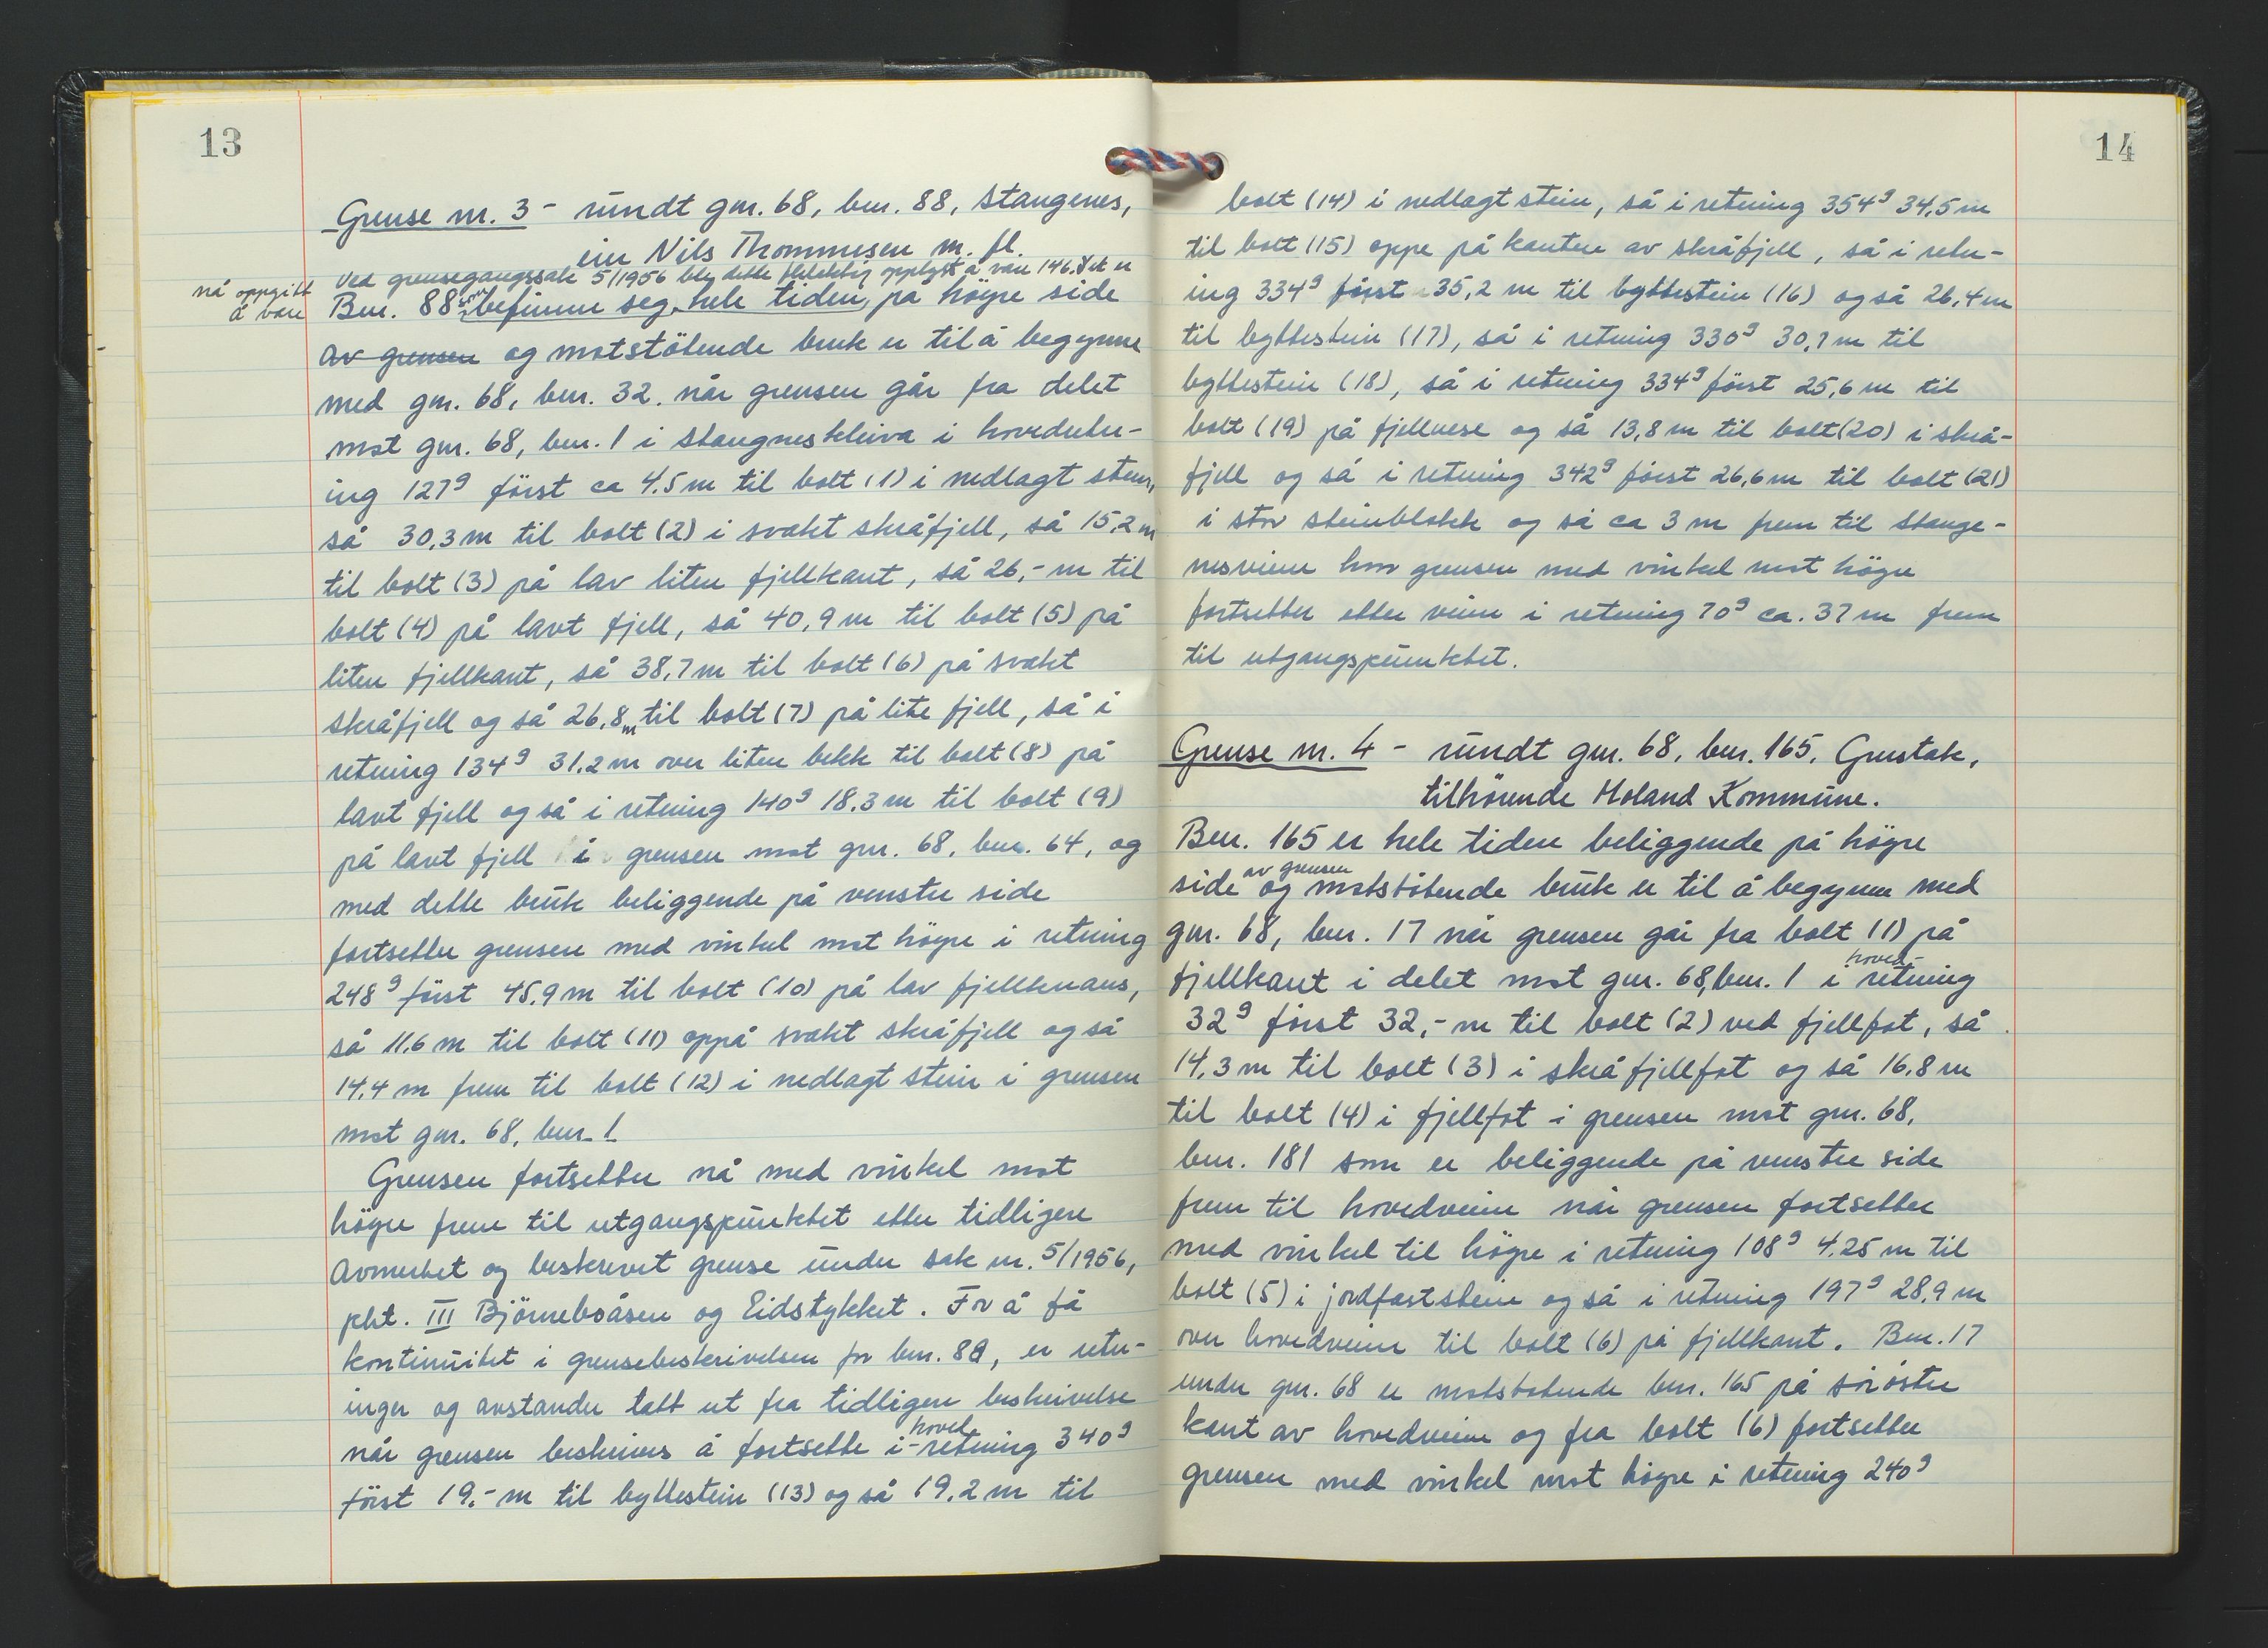 13
Grense nr. 3 - rundt gnr. 68, bnr. 88, Stangenes,
eier Nils Thommesen m. fl.
Ved grensegangssak 5/1956 ble dette feilaktig opplyst å være 146. Det er
nå oppgitt
å være
Bnr. 88 som befinner seg hele tiden på høyre side
av grensen og motstötende bruk er til å begynne
med gnr. 68, bnr. 32. når grensen går fra delet
mot gnr. 68, bnr. 1 i Stangneskleiva i hovedretn-
ing 127g först ca 4.5 m til bolt (1) i nedlagt sten,
så 30,3 m til bolt (2) i svakt skråfjell, så 15,2 m
til bolt (3) på lav liten fjellkant, så 26,- m til
bolt (4) på lavt fjell, så 40,9 m til bolt (5) på
liten fjellkant, så 38,7 m til bolt (6) på svakt
skråfjell og så 26,8 m til bolt (7) på lite fjell, så i
retning 134g 31.2 m over liten bekk til bolt (8) på
lavt fjell og så i retning 140g 18.3 m til bolt (9)
på lavt fjell i grensen mot gnr. 68, bnr. 64, og
med dette bruk beliggende på venstre side
fortsetter grensen med vinkel mot höyre i retning
248g först 45.9 m til bolt (10) på lav fjellknaus,
så 11,6 m til bolt (11) oppå svakt skråfjell og så
14,4 m frem til bolt (12) i nedlagt stein i grensen
mot gnr. 68, bnr. 1.
Grensen fortsetter nå med vinkel mot
höyre frem til utgangspunktet etter tidligere
avmerket og beskrevet grense under sak nr. 5/1956,
pkt. III Björneboåsen og Eidstykket. For å få
kontinuitet i grensebeskrivelsen for bnr. 88, er retn-
inger og avstander tatt ut fra tidligere beskrivelse
når grensen beskrives å fortsette i hoved-retning 340g
först 19,- m til byttestein (13) og så 19,2 m til
14
bolt (14) i nedlagt stein, så i retning 354g 34,5 m
til bolt (15) oppe på kanten av skråfjell, så i retn-
ing 334g först 35,2 m til byttestein (16) og så 26,4 m
til byttestein (17), så i retning 330g 30,7 m til
byttestein (18), så i retning 334g först 25,6 m til
bolt (19) på fjellnese og så 13,8 m til bolt (20) i skrå-
fjell og så i retning 342g först 26,6 m til bolt (21)
i stor steinblokk og så ca 3 m frem til Stange-
nesveien hvor grensen med vinkel mot höyre
fortsetter etter veien i retning 70g ca. 37 m frem
til utgangspunktet.
Grense nr. 4 - rundt gnr. 68, bnr. 165, Grustak,
tilhörende Moland Kommune.
Bnr. 165 er hele tiden beliggende på höyre
side av grensen og motstötende bruk er til å begynne med
gnr. 68, bnr. 17 når grensen går fra bolt (1) på
fjellkant i delet mot gnr. 68, bnr. 1 i hoved-retning
32g först 32,- m til bolt (2) ved fjellfot, så
14,3 m til bolt (3) i skråfjellfot og så 16,8 m
til bolt (4) i fjellfot i grensen mot gnr. 68,
bnr. 181 som er beliggende på venstre side
frem til hovedveien når grensen fortsetter
med vinkel til höyre i retning 108g 4,25 m til
bolt (5) i jordfast stein og så i retning 197g 28,9 m
over hovedveien til bolt (6) på fjellkant. Bnr. 17
under gnr. 68 er motstötende bnr. 165 på söröstre
kant av hovedveien og fra bolt (6) fortsetter
grensen med vinkel mot höyre i retning 240g